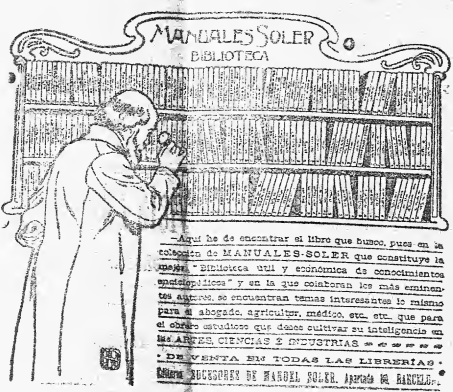 MANUALES SOLER
BIBLIOTECA
—Aquí he de encontrar el libro que busco, pues en la
colección de MANUALES-SOLER que constituye la
mejor "Biblioteca util y económica de conocimientos
enciclopédicos" y en la que colaboran los más eminen-
tes autores, se encuentran temas interesantes lo mismo
para el abogado, agricultor, médico, etc., etc., que para
el obrero estudioso que desee cultivar su inteligencia en
las ARTES, CIENCIAS E INDUSTRIAS
DE VENTA EN TODAS LAS LIBRERÍAS
SUCESORES DE MANUEL SOLER, Apartado BARCELO